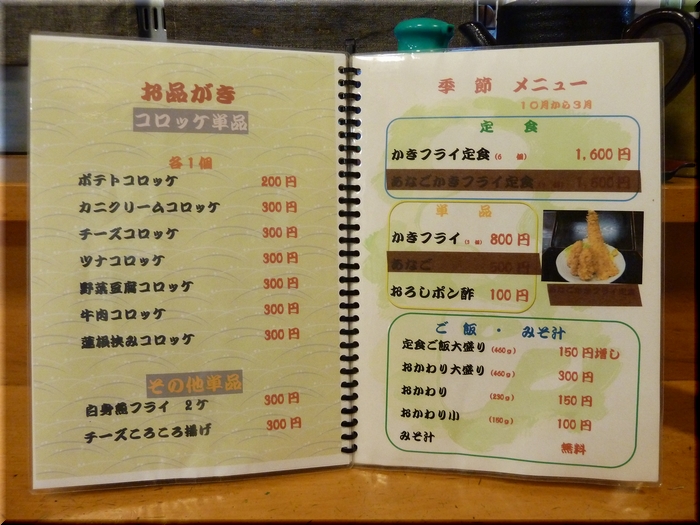 お品がき
コロッケ単品
各1個
ポテトコロッケ 200円
カニクリームコロッケ 300円
チーズコロッケ 300円
ツナコロッケ 300円
野菜豆腐コロッケ 300円
牛肉コロッケ 300円
蓮根挟みコロッケ 300円
その他単品
白身魚フライ 2ケ 300円
チーズころころ揚げ 300円
季節 メニュー
10月から3月
定食
かきフライ定食(6個) 1,600円
あなごかきフライ定食 1,600円
単品
かきフライ(3個) 800円
あなご 500円
おろしポン酢 100円
ご飯・みそ汁
定食ご飯大盛り(460g) 150円増し
おかわり大盛り(460g) 300円
おかわり (230g) 150円
おかわり小 (150g) 100円
みそ汁 無料